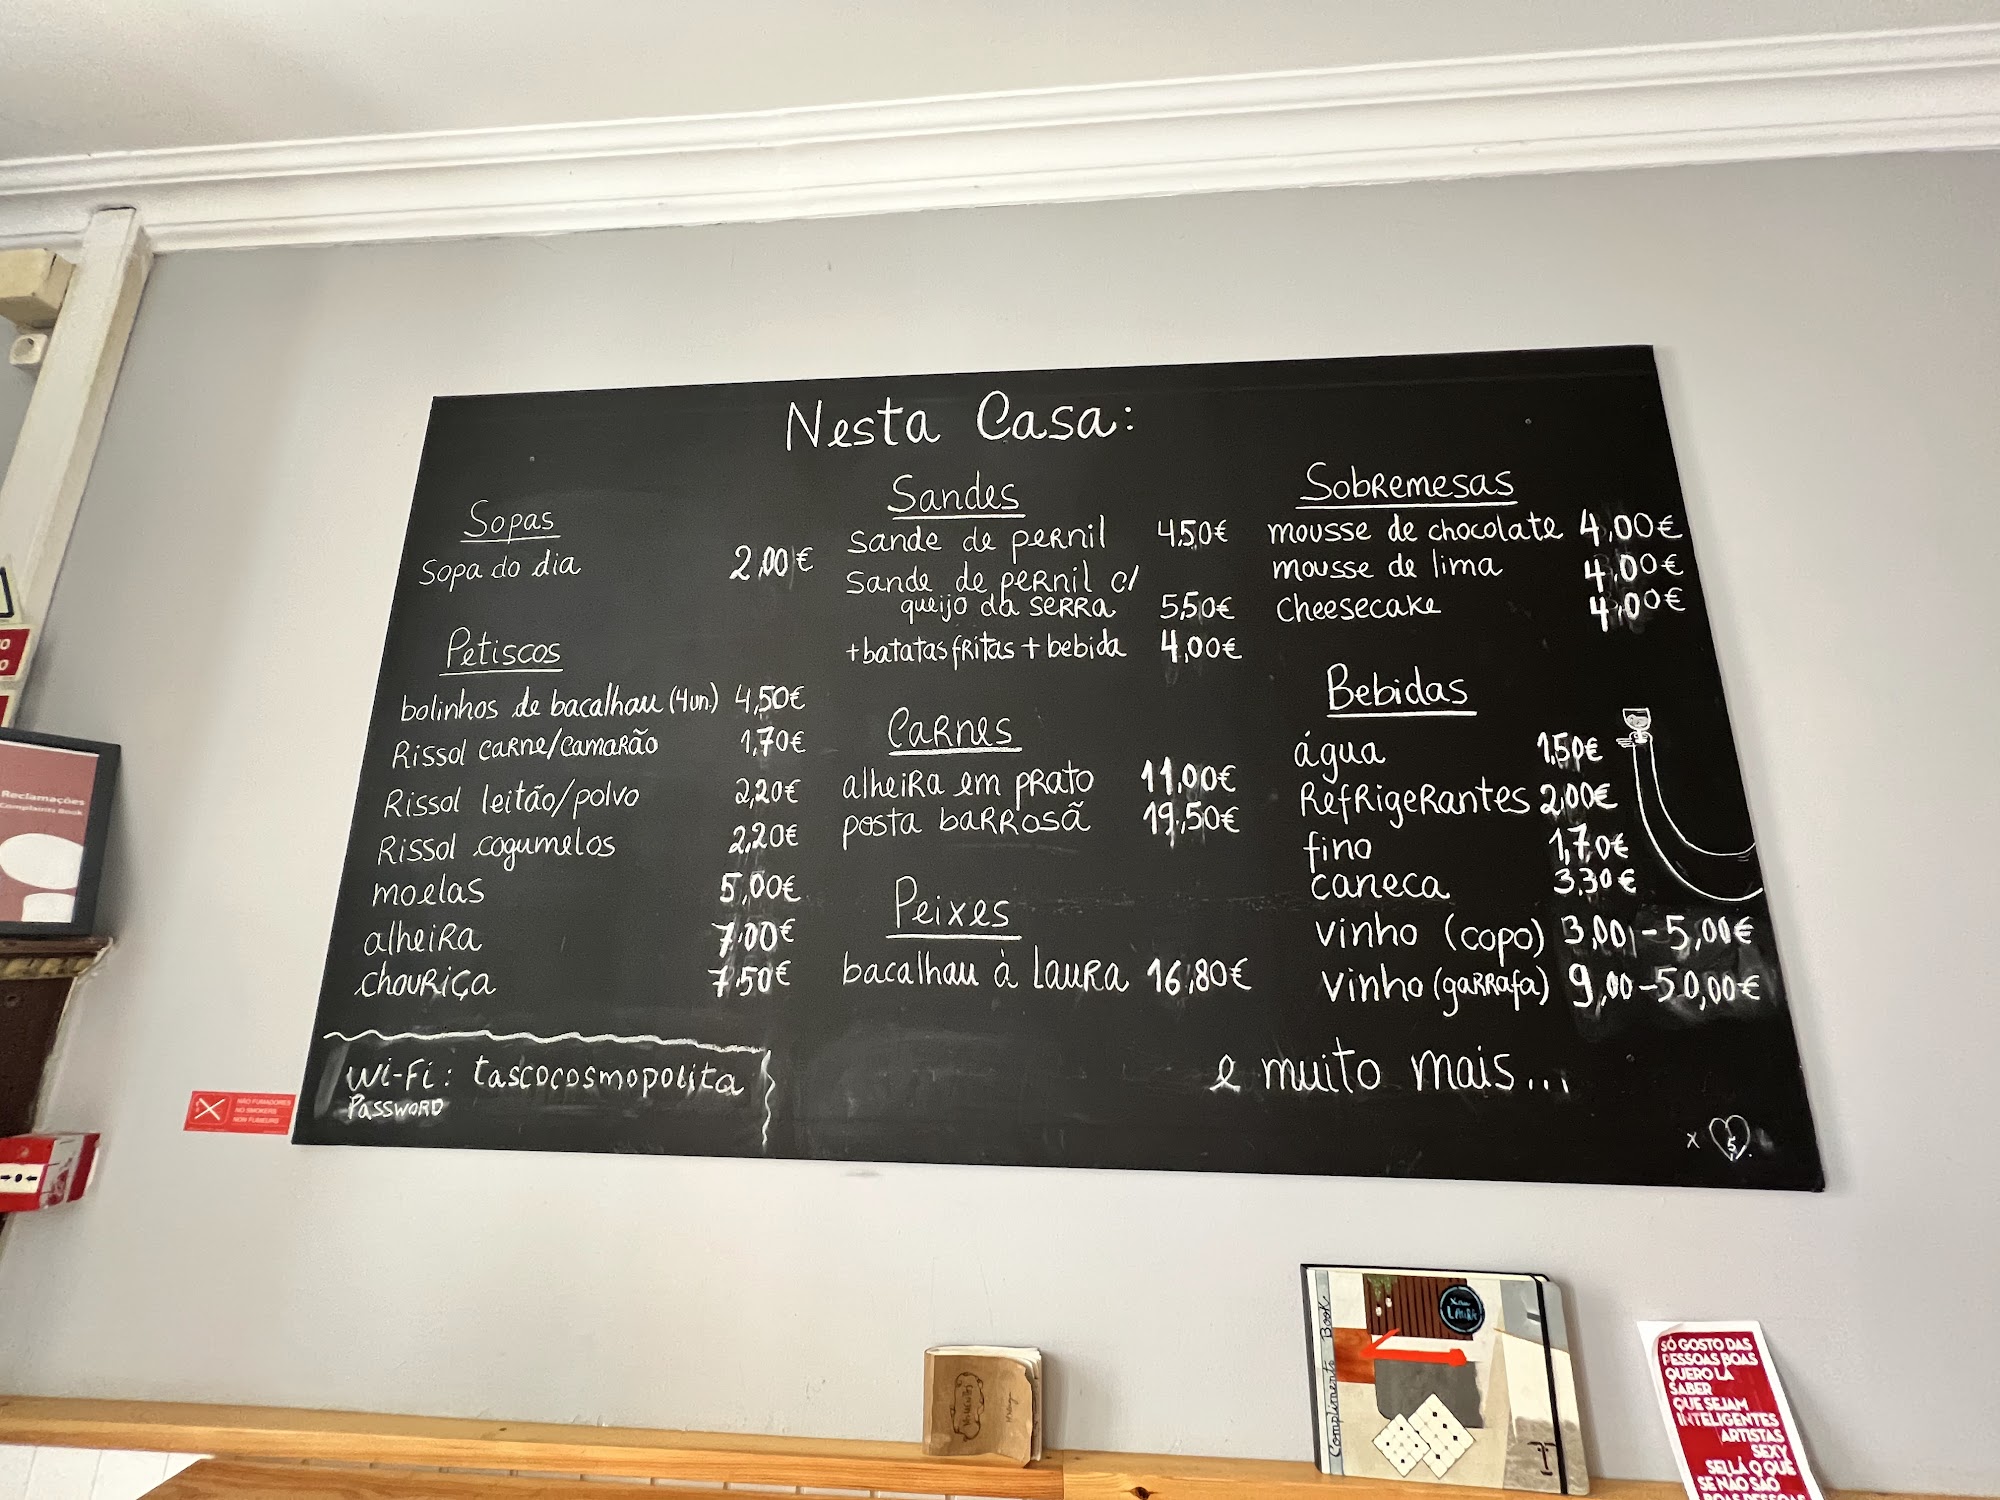 Nesta Casa:
Sopas
Sopa do dia 2,00€
Petiscos
bolinhos de bacalhau (4un.) 4,50€
Rissol carne/camarão 1,70€
Rissol leitão/polvo 2,20€
Rissol cogumelos 2,20€
moelas 5,00€
alheira 7,00€
chouriça 7,50€
Wi-Fi: tascocosmopolita
Password
Sandes
sande de pernil 4,50€
sande de pernil c/
queijo da serra 5,50€
+batatas fritas + bebida 4,00€
Carnes
alheira em prato 11,00€
posta barrosã 19,50€
Peixes
bacalhau à Laura 16,80€
Sobremesas
mousse de chocolate 4,00€
mousse de lima 4,00€
Cheesecake 4,00€
Bebidas
água 1,50€
Refrigerantes 2,00€
fino 1,70€
caneca 3,30€
vinho (copo) 3,00 - 5,00€
vinho (garrafa) 9,00 - 50,00€
e muito mais...
x 5
Reclamações
Complaints Book
NÃO FUMADORES
NO SMOKERS
NON FUMEURS
Compliments Book
LAURA
SÓ GOSTO DAS
PESSOAS BOAS
QUERO LÁ
SABER
QUE SEJAM
INTELIGENTES
ARTISTAS
SEXY
SEI LÁ O QUÊ
SE NÃO SÃO
BOAS PESSOAS